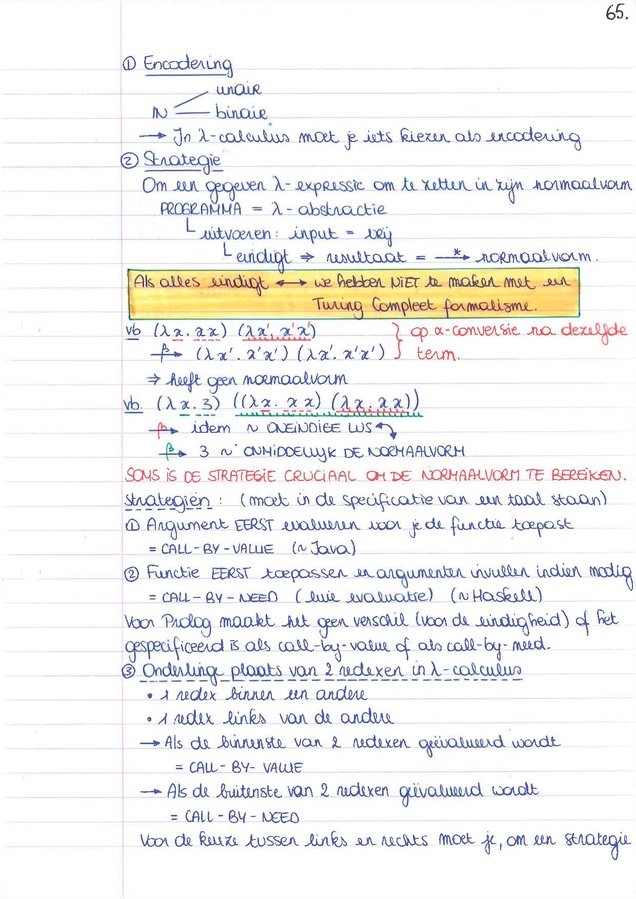 65.
① Encodering
unair
IN binair
→ In λ-calculus moet je iets kiezen als encodering
② Strategie
Om een gegeven λ-expressie om te zetten in zijn normaalvorm
PROGRAMMA = λ-abstractie
uitvoeren: input = vrij
eindigt ⇒ resultaat = —*→ normaalvorm.
Als alles eindigt ↔ we hebben NIET te maken met een
Turing Compleet formalisme.
vb (λx. xx) (λx'. x'x') } op α-conversie na dezelfde
β→ (λx'. x'x') (λx'. x'x') term.
⇒ heeft geen normaalvorm
vb. (λx. 3) ((λx. xx) (λx. xx))
β→ idem ~ ONEINDIGE LUS
β→ 3 ~ ONMIDDELLIJK DE NORMAALVORM
SOMS IS DE STRATEGIE CRUCIAAL OM DE NORMAALVORM TE BEREIKEN.
Strategiën : (moet in de specificatie van een taal staan)
① Argument EERST evalueren voor je de functie toepast
= CALL-BY-VALUE (~ Java)
② Functie EERST toepassen en argumenten invullen indien nodig
= CALL-BY-NEED (luie evaluatie) (~ Haskell)
Voor Prolog maakt het geen verschil (voor de eindigheid) of het
gespecificeerd is als call-by-value of als call-by-need.
③ Onderlinge plaats van 2 redexen in λ-calculus
• 1 redex binnen een andere
• 1 redex links van de andere
→ Als de binnenste van 2 redexen geëvalueerd wordt
= CALL-BY-VALUE
→ Als de buitenste van 2 redexen geëvalueerd wordt
= CALL-BY-NEED
Voor de keuze tussen links en rechts moet je, om een strategie